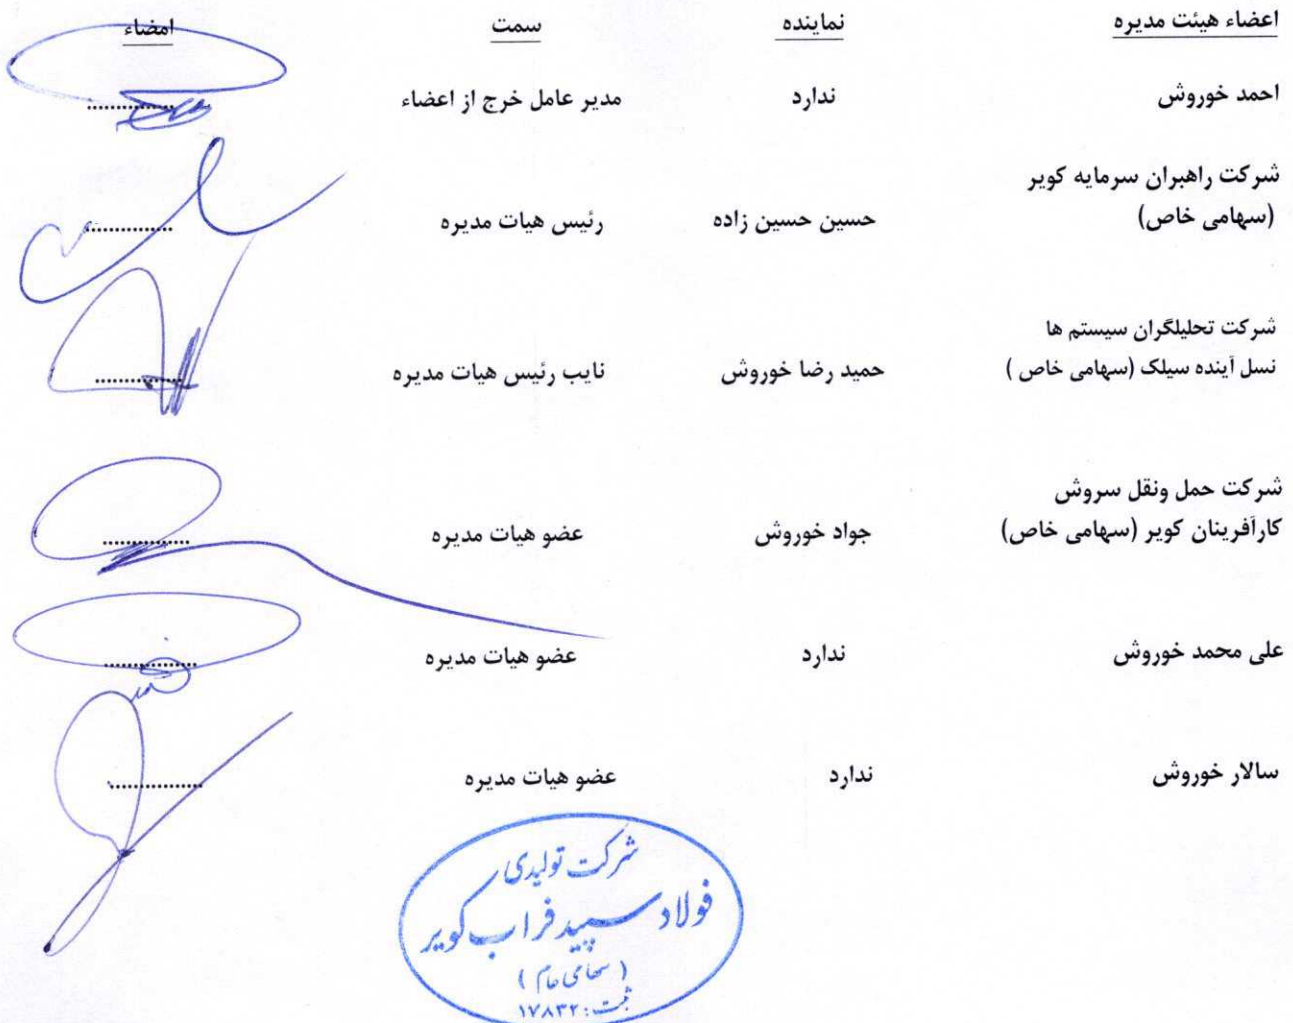 اعضاء هیئت مدیره نماینده سمت امضاء
احمد خوروش ندارد مدیر عامل خرج از اعضاء ..............
شرکت راهبران سرمایه کویر
(سهامی خاص) حسین حسین زاده رئیس هیات مدیره ..............
شرکت تحلیلگران سیستم ها
نسل آینده سیلک (سهامی خاص ) حمید رضا خوروش نایب رئیس هیات مدیره ..............
شرکت حمل ونقل سروش
کارآفرینان کویر (سهامی خاص) جواد خوروش عضو هیات مدیره ..............
علی محمد خوروش ندارد عضو هیات مدیره ..............
سالار خوروش ندارد عضو هیات مدیره ..............
شرکت تولیدی
فولاد سپید فراب کویر
( سهامی عام )
ثبت: ۱۷۸۳۲